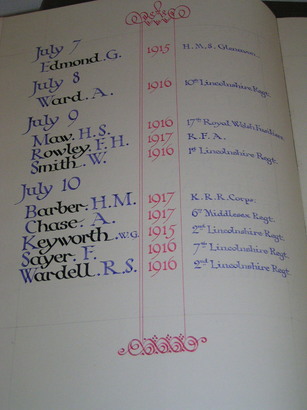 July 7
Edmond. G. 1915 H.M.S. Glatton.
July 8
Ward. A. 1916 10th Lincolnshire Regt.
July 9
Maw. H.S. 1916 17th Royal Welsh Fusiliers
Rowley. F.H. 1917 R.F.A.
Smith. W. 1916 1st Lincolnshire Regt.
July 10
Barber. H.M. 1917 K.R.R.Corps.
Chase. A. 1917 6th Middlesex Regt.
Keyworth. W.G. 1915 2nd Lincolnshire Regt.
Sayer. F. 1916 7th Lincolnshire Regt.
Wardell. R.S. 1916 2nd Lincolnshire Regt.